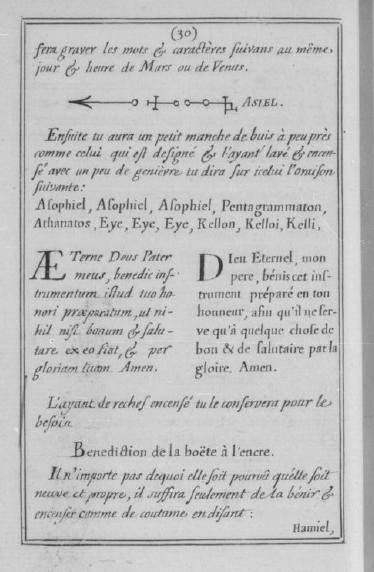 (30)
fera graver les mots & caractères suivans au même
jour & heure de Mars ou de Venus.
ASIEL.
Ensuite tu aura un petit manche de buis à peu près
comme celui qui est designé & l'ayant lavé & encen-
sé avec un peu de genièvre tu dira sur icelui l'oraison
suivante:
Asophiel, Asophiel, Asophiel, Pentagrammaton,
Athanatos, Eye, Eye, Eye, Kellon, Kelloi, Kelli,
ÆTerne Deus Pater
meus, benedic ins-
trumentum istud tuo ho-
nori præparatum, ut ni-
hil nisi bonum & salu-
tare ex eo fiat, & per
gloriam tuam. Amen.
DIeu Eternel, mon
pere, bénis cet ins-
trument préparé en ton
honneur, afin qu'il ne ser-
ve qu'à quelque chose de
bon & de salutaire par ta
gloire. Amen.
L'ayant de reches encensé tu le conservera pour le
besoin
Benediction de la boëte à l'encre.
Il n'importe pas dequoi elle soit pourvû qu'elle soit
neuve et propre, il suffira seulement de la bénir &
encenser comme de coutume en disant:
Hamiel,